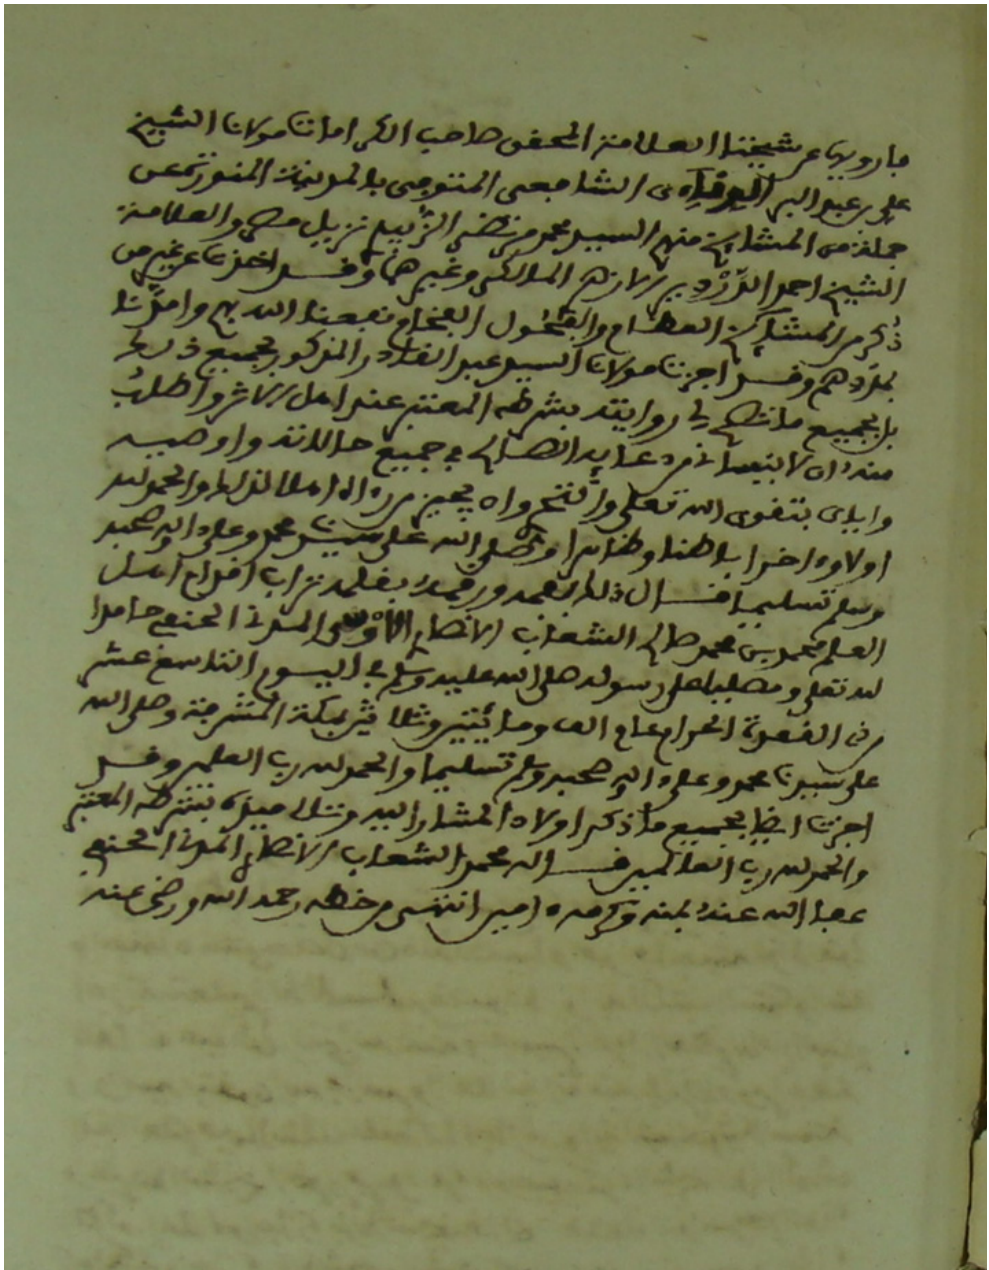 فارويها عن شيخنا العلامة المحقق صاحب الكرامات مولانا الشيخ
علي بن عبد البر الونائي الشافعي المتوفى بالمدينة المنورة عن
جملة من المشايخ منهم السيد محمد مرتضى الزبيدي نزيل مصر والعلامة
الشيخ احمد الدردير الازهري المالكي وغيرهما وقد اخذنا عن غير من
ذكر من المشايخ العظام والفحول الفخام نفعنا الله بهم وامدنا
بمددهم وقد اجزنا مولانا السيد عبد القادر المذكور بجميع ذلك
بل بجميع ما تصح لي روايته بشرطه المعتبر عند اهل الاثر واطلب
منه ان لا ينساني من دعايه الصالح في جميع حالاته واوصيه
وايلى بتقوى الله تعلى وان يجيز من راه اهلا لذلك والحمد لله
اولا واخرا باطنا وظاهرا وصلى الله على سيدنا محمد وعلى اله وصحبه
وسلم تسليما قال ذلك بفمه ورقمه بقلمه تراب اقدام اهل
العلم محمد بن محمد صالح الشعاب الانصاري المدني الحنفي حامدا
لله تعلى ومصليا على رسوله صلى الله عليه وسلم في اليوم التاسع عشر
من ذي القعدة الحرام عام الف ومائتين وثلاثين بمكة المشرفة وصلى الله
على سيدنا محمد وعلى اله وصحبه وسلم تسليما والحمد لله رب العلمين وقد
اجزنا ايضا بجميع ما ذكر اولاد المشار اليه وتلاميذه بشرطه المعتبر
والحمد لله رب العالمين قاله محمد الشعاب الانصاري المدني الحنفي
عفا الله عنه بمنه وكرمه امين انتهى من خطه رحمه الله ورضي عنه